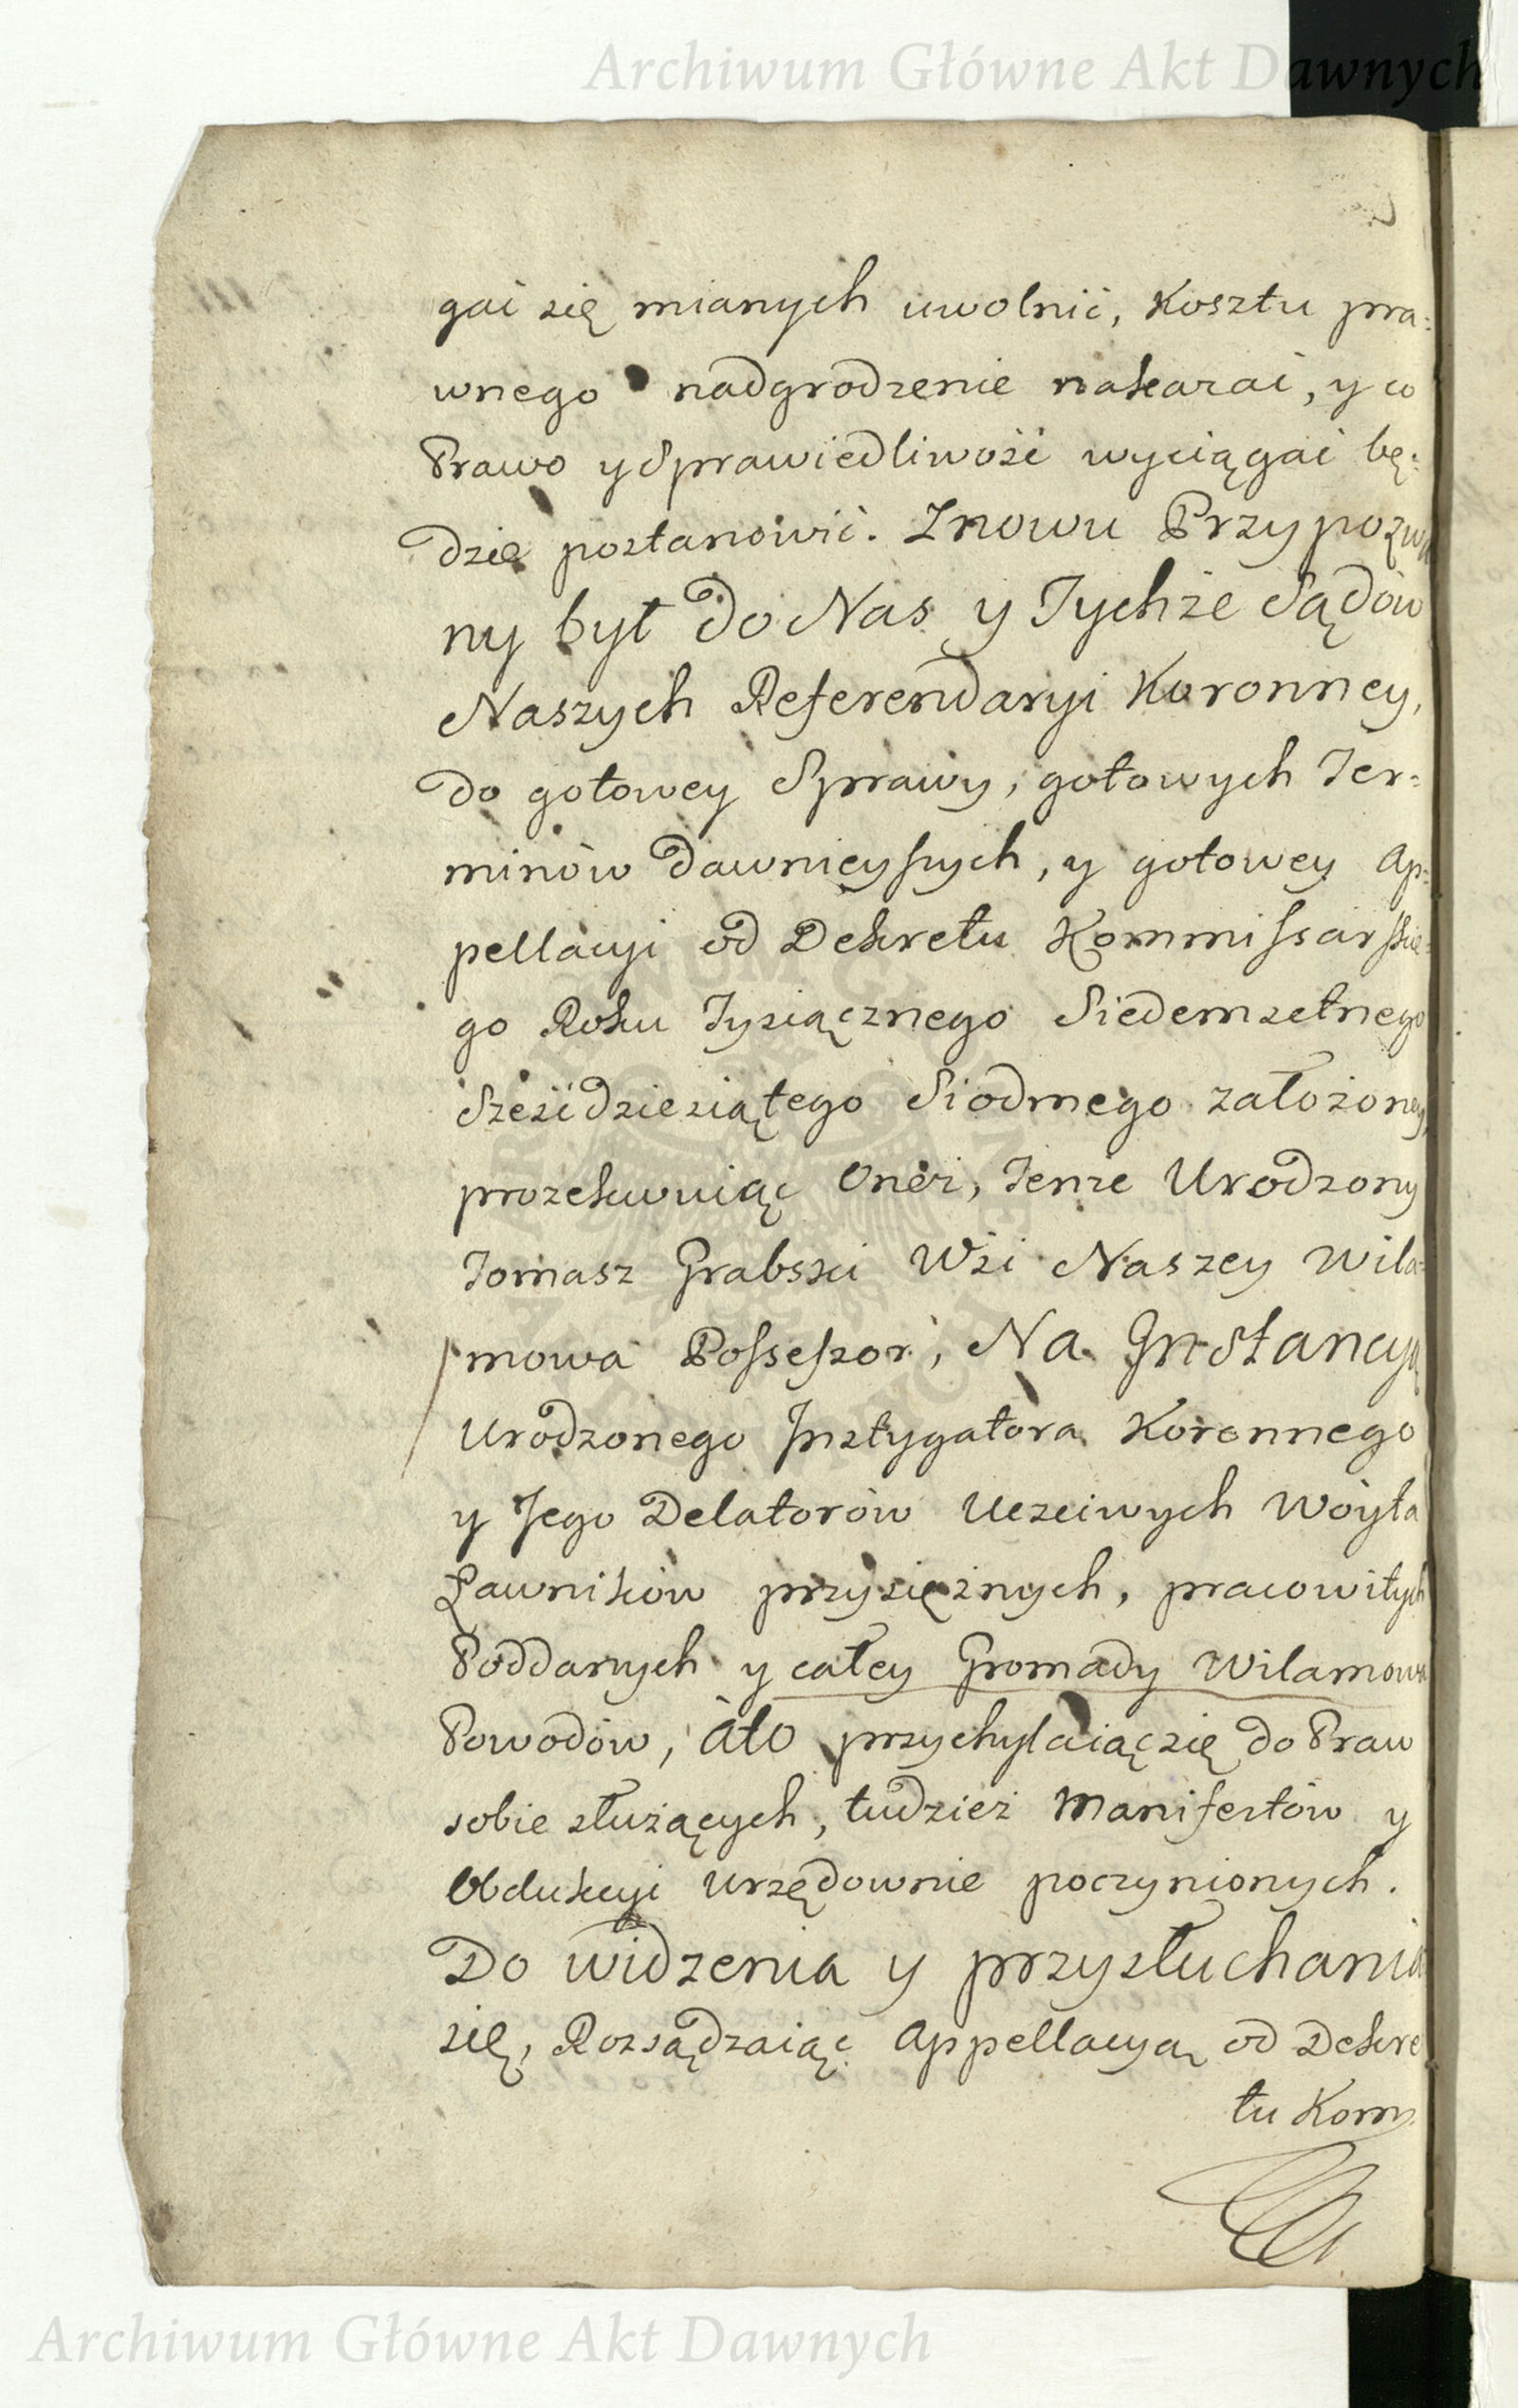 Archiwum Główne Akt Dawnych
gać się mianych uwolnić, Kosztu pra=
wnego nadgrodzenie nakazać, y co
Prawo y Sprawiedliwość wyciągać bę=
dzie postanowić. Znowu Przypozwa
ny był do Nas y Tychże Sądów
Naszych Referendaryi Koronney,
do gotowey Sprawy, gotowych Ter=
minów dawnieyszych, y gotowey Ap=
pellacyi od Dekretu Kommissarskie=
go Roku Tysiącznego Siedemsetnego
Sześćdziesiątego Siodmego założoney,
prozekwuiąc Oneż, Tenże Urodzony
Tomasz Grabski Wsi Naszey Wila=
mowa Possessor, Na Instancyą
Urodzonego Instygatora Koronnego
y Jego Delatorów Uczciwych Woyta
Ławników przysiężnych, pracowitych
Poddanych y całey Gromady Wilamowa
Powodów, Ato przychylaiąc się do Praw
sobie służących, tudzież Manifestów y
Obdukcyi Urzędownie poczynionych.
Do widzenia y przysłuchania
się, Rozsądzaiąc Appellacyą od Dekre
tu Kom
Archiwum Główne Akt Dawnych